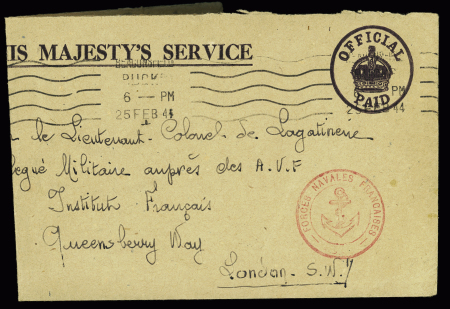 HIS MAJESTY'S SERVICE
OFFICIAL
PAID
BEACONSFIELD
BUCKS
6 — PM
25 FEB 44
PM
25 FEB 44
le Lieutenant-Colonel de Lagatinerie
legué Militaire auprès des A.V.F
Institut Français
Queensberry Way
London. S.W.7
FORCES NAVALES FRANÇAISES